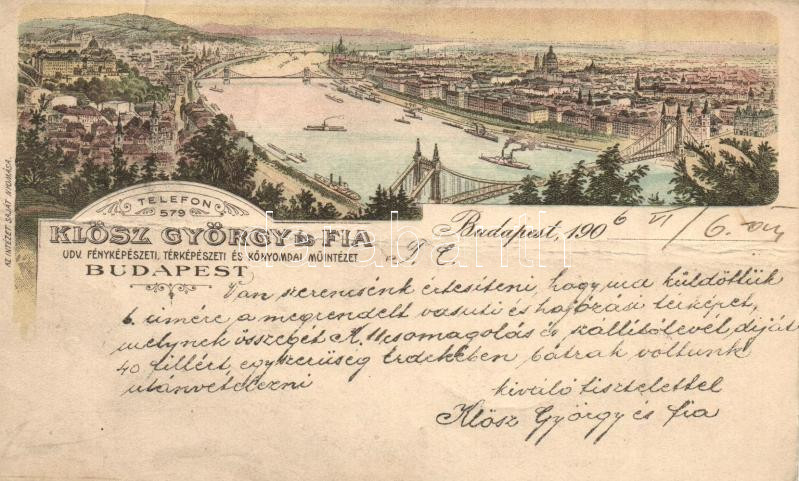 AZ INTÉZET SAJÁT NYOMÁSA.
TELEFON
579
KLÖSZ GYÖRGY és FIA
UDV. FÉNYKÉPÉSZETI, TÉRKÉPÉSZETI ÉS KŐNYOMDAI MŰINTÉZET
BUDAPEST
Budapest, 1906 VI/6.
P. T.
Van szerencsénk értesíteni, hogy ma küldöttük
b. címére a megrendelt vasuti és hajózási térképet,
melynek összegét K. 11 csomagolás és szállítólevél díját
40 fillért, egyszerüség érdekében bátrak voltunk
utánvételezni
kiváló tisztelettel
Klösz György és fia
darabanth